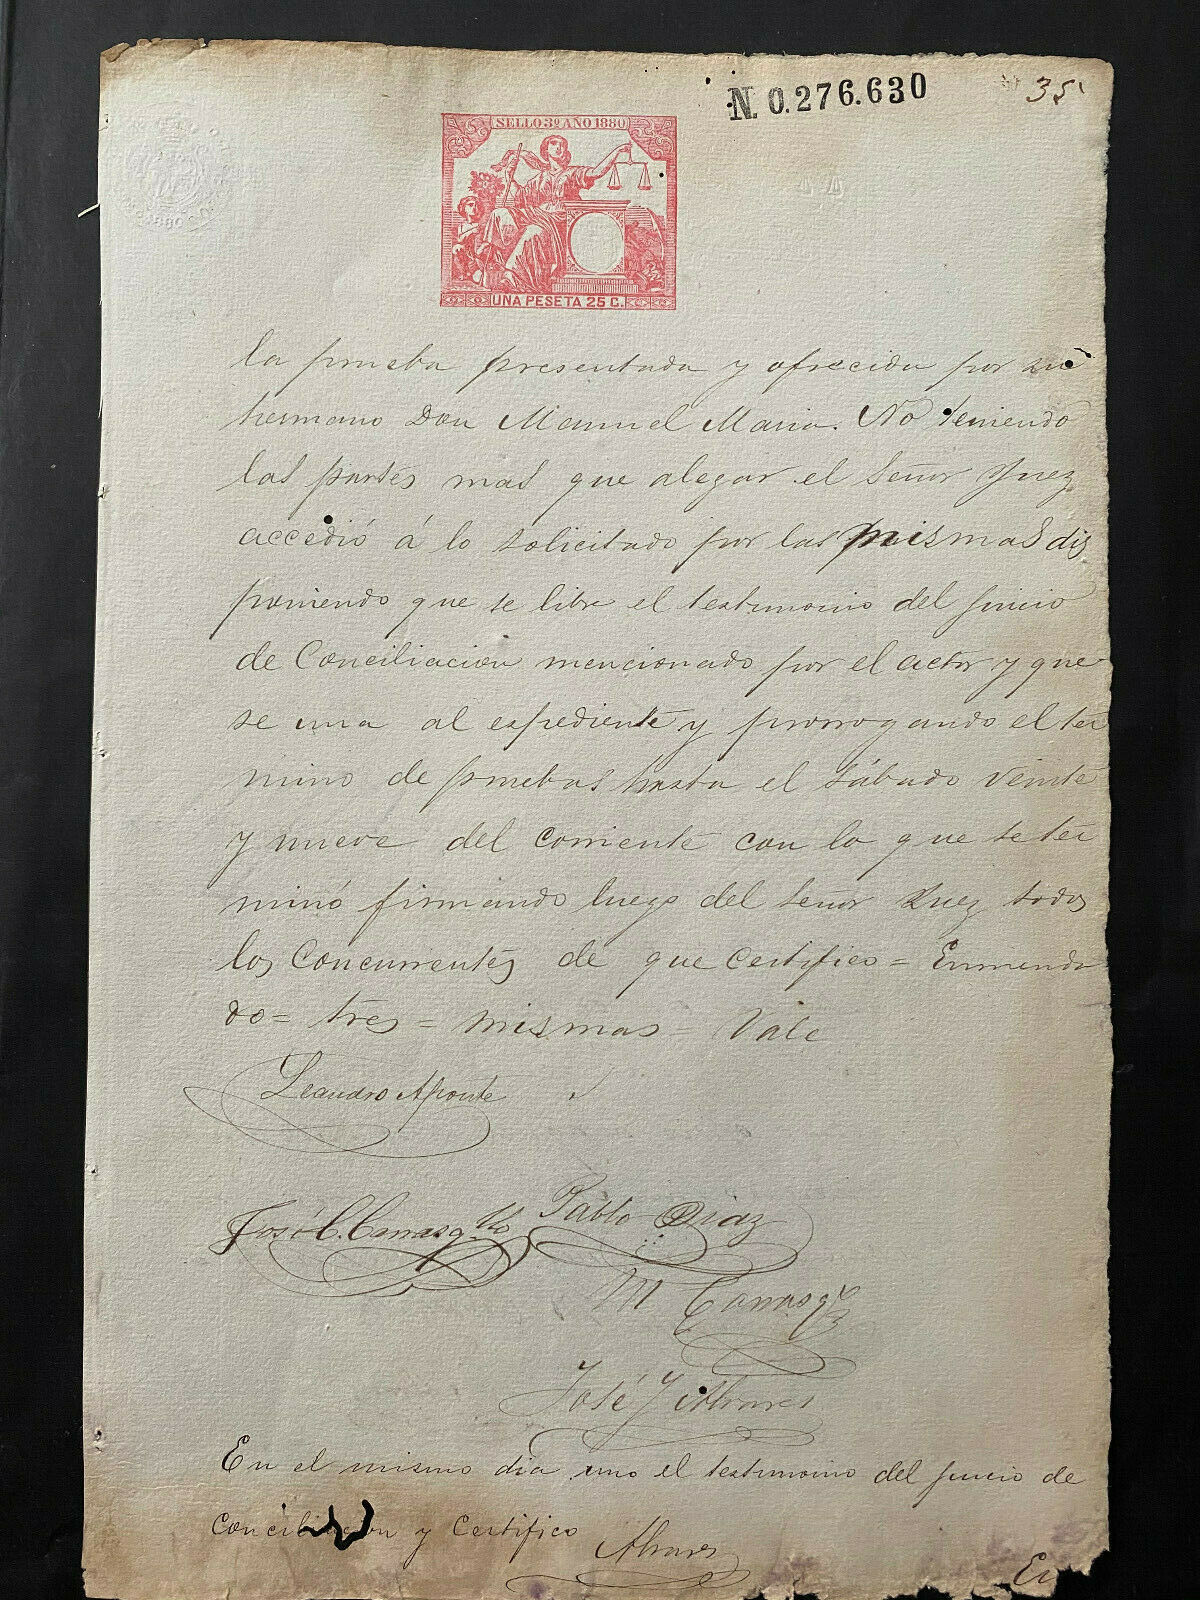 N. 0.276.630
35
SELLO 3º AÑO 1880
UNA PESETA 25 C.
la prueba presentada y ofrecida por su
hermano Don Manuel Maria. No teniendo
las partes mas que alegar el Señor Juez
accedió á lo solicitado por las mismas dis
poniendo que se libre el testimonio del juicio
de Conciliacion mencionado por el actor y que
se una al espediente y prorrogando el ter
mino de pruebas hasta el sábado veinte
y nueve del corriente con lo que se ter
minó firmando luego del señor Juez todos
los concurrentes de que certifico = Enmenda
do = tres = mismas = Vale
Leandro Aponte
José C. Carrasq.llo Pablo Diaz
M Carrasq
José Alvares
En el mismo dia uno el testimonio del juicio de
Conciliacion y Certifico
Alvares
En